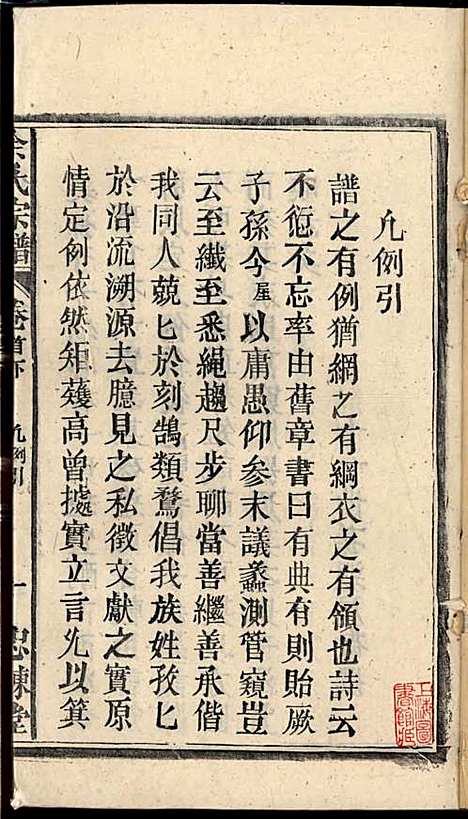 凡例引
譜之有例猶網之有綱衣之有領也詩云
不愆不忘率由舊章書曰有典有則貽厥
子孫今屋以庸愚仰参末議蠡測管窺豈
云至纎至悉繩趨尺步聊當善繼善承偕
我同人兢匕於刻鵠類鶩倡我族姓孜匕
於沿流溯源去臆見之私徵文獻之實原
情定例依然矩蒦高曾攄實立言先以箕
余氏宗譜 卷首下 凡例引 一 忠諫堂